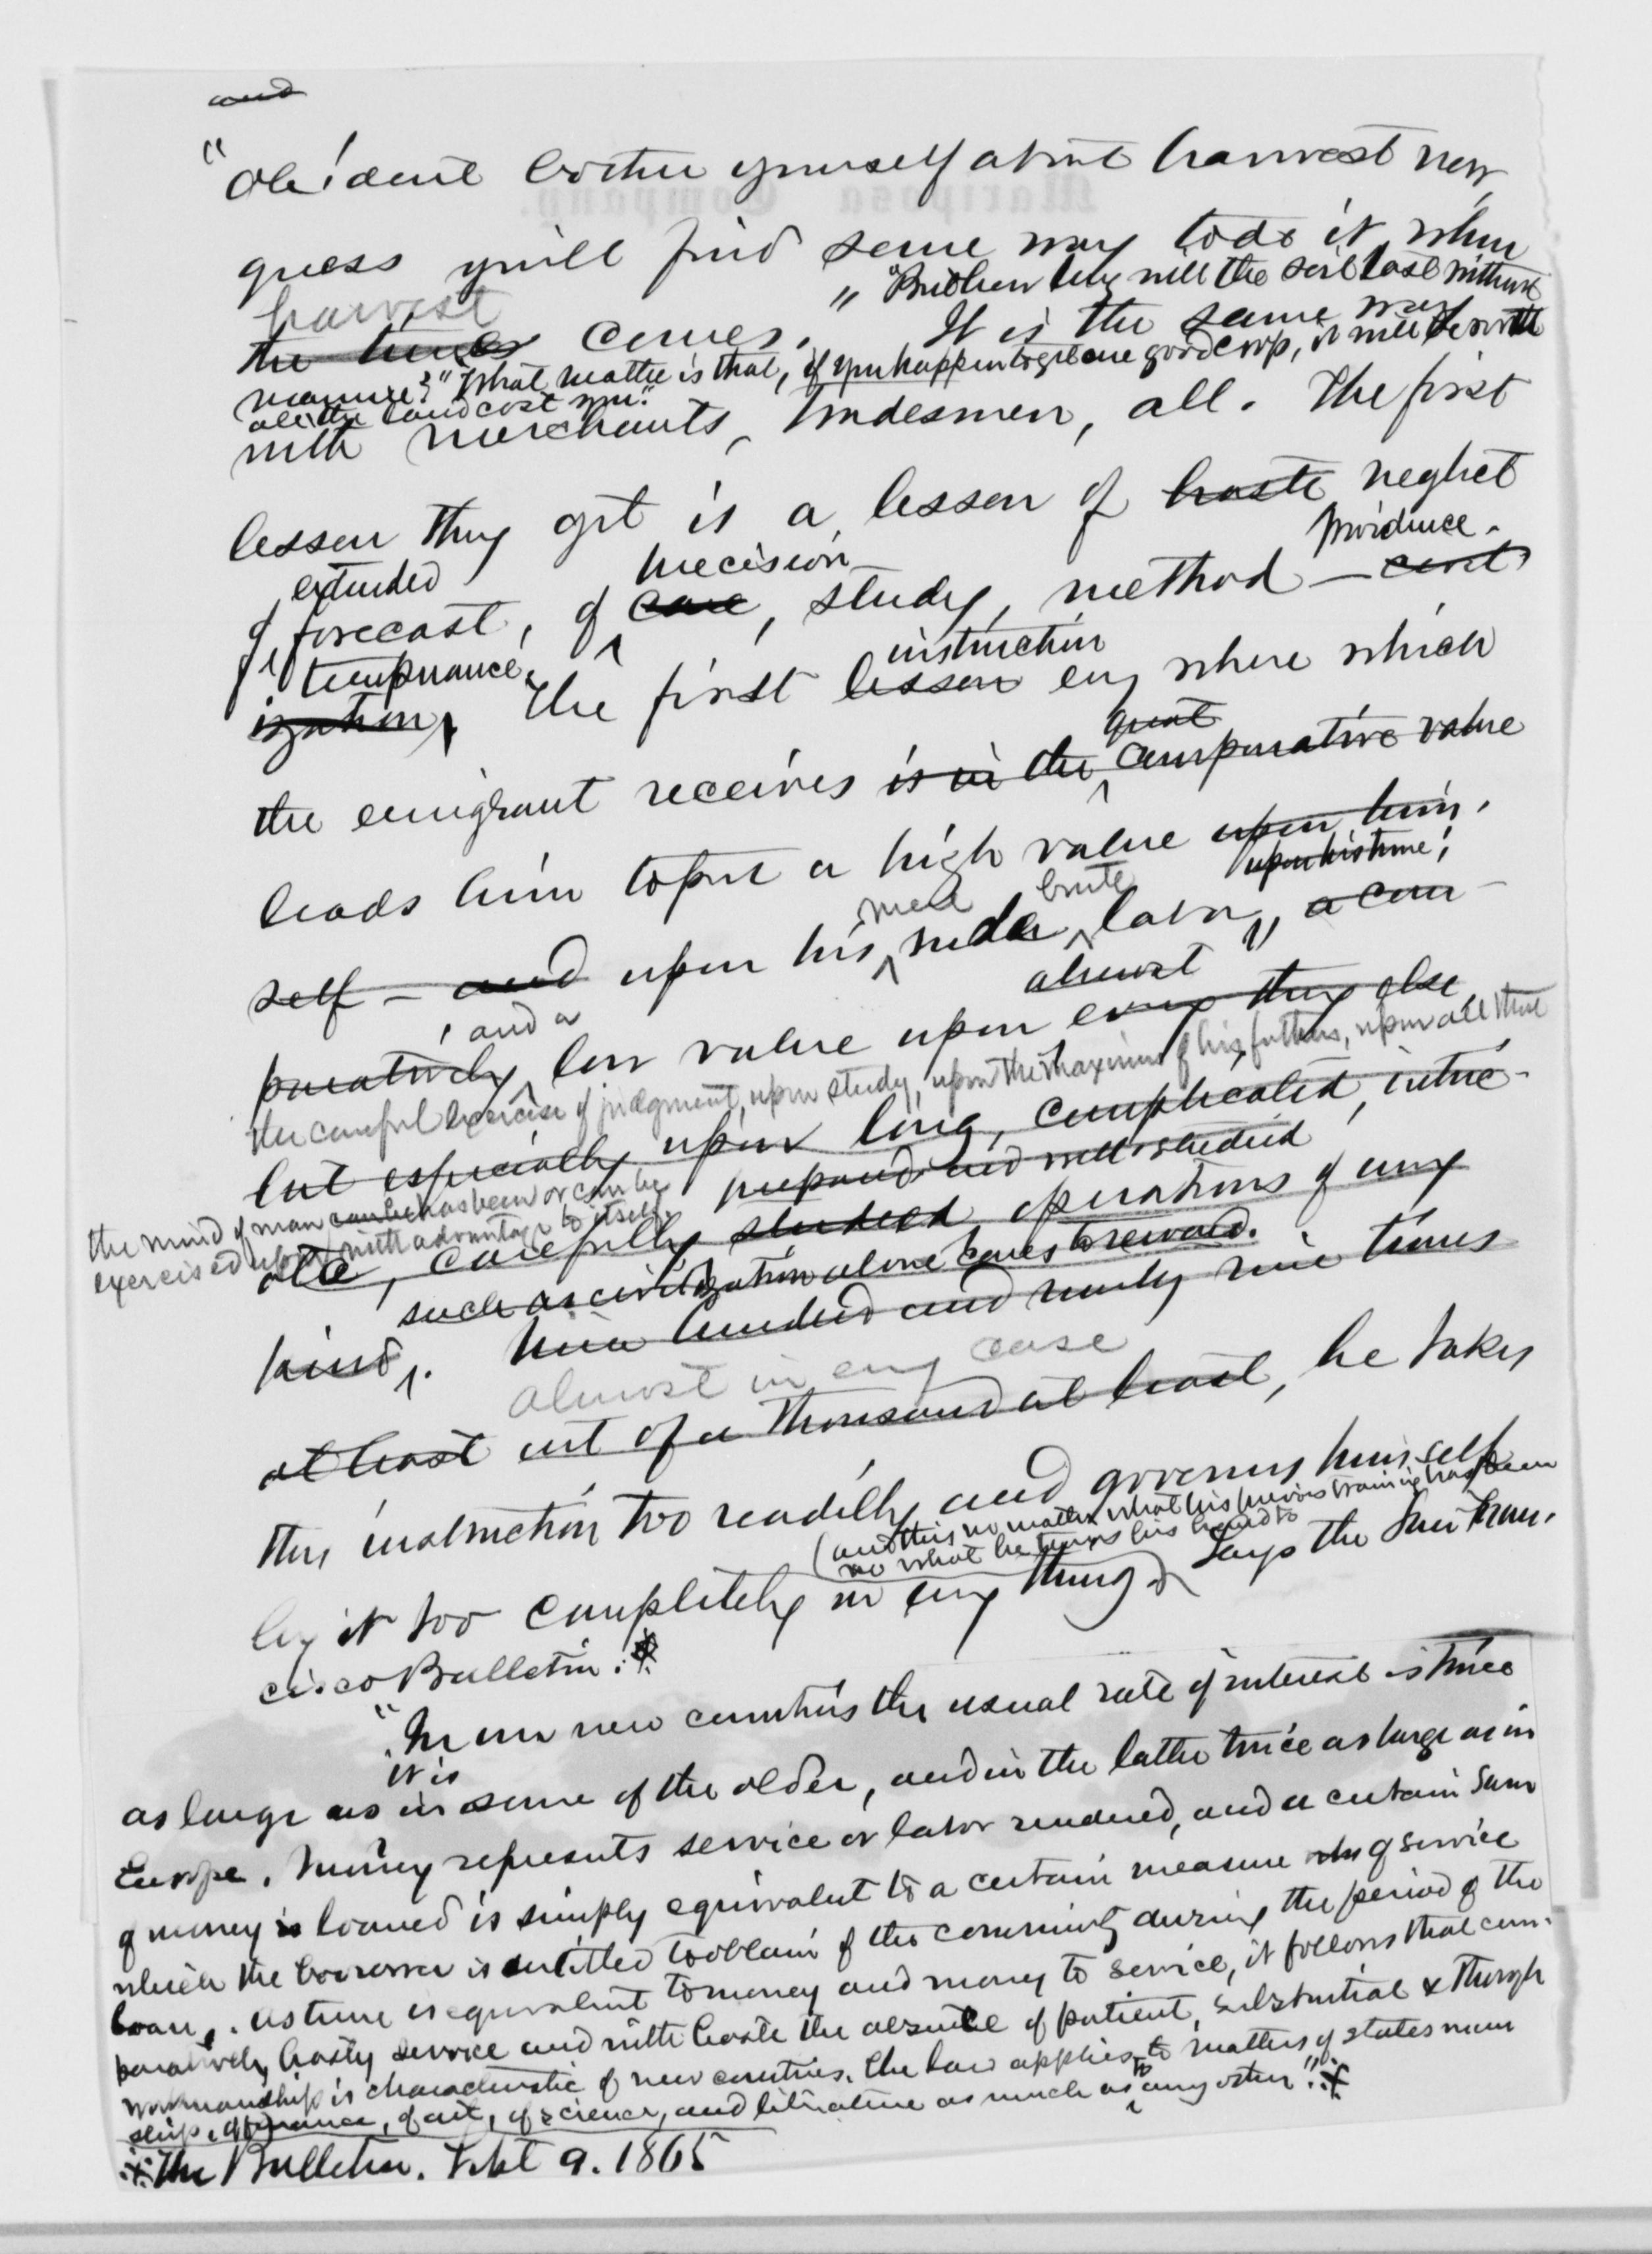 and
"Oh! dont bother yourself about harvest now,
guess you'll find some way to do it when
harvest
" "But how long will the soil last without
the times comes. It is the same way
manure?" "What matter is that, if you happen to get one good crop, it will be worth
all the land cost you."
with merchants, tradesmen, all. The first
lesson they get is a lesson of haste neglect
extended precision providence.
of forecast, of care, study, method — civil
temperance. instruction
ization. The first lesson eny where which
great
the emigrant receives is in the comparative value
leads him to put a high value upon him.
mere brute upon his time;
self – and upon his rude labor, a com-
and a almost
paratively low value upon every thing else
the careful exercise of judgment, upon study, upon the maxims of his fathers, upon all that
but especially upon long, complicated, intric-
the mind of man can be has been or can be prepared and well studied
exercised upon with advantage to itself.
ate, carefully studied operations of any
such as civilization alone comes to reward.
kind. Nine hundred and ninety nine times
almost in eny case
at least out of a thousand at least, he takes
this instruction too readily and governs himself
(and this no matter what his previous training has been
no what he turns his hand to
by it too completely in eny thing. Says the San Fran-
cisco Bulletin:*
"In our new countries the usual rate of interest is twice
it is
as large as in some of the older, and in the latter twice as large as in
Europe. Money represents service or labor rendered, and a certain sum
of money is loaned is simply equivalent to a certain measure of service
which the borrower is entitled to obtain of the community during the period of the
loan. As time is equivalent to money and money to service, it follows that com-
paratively hasty service and with haste the absence of patient, substantial & thorough
workmanship is characteristic of new countries. The law applies to matters of statesman
to
ship, of finance, of art, of science, and literature as much as any other."*
* The Bulletin. Sept 9. 1865